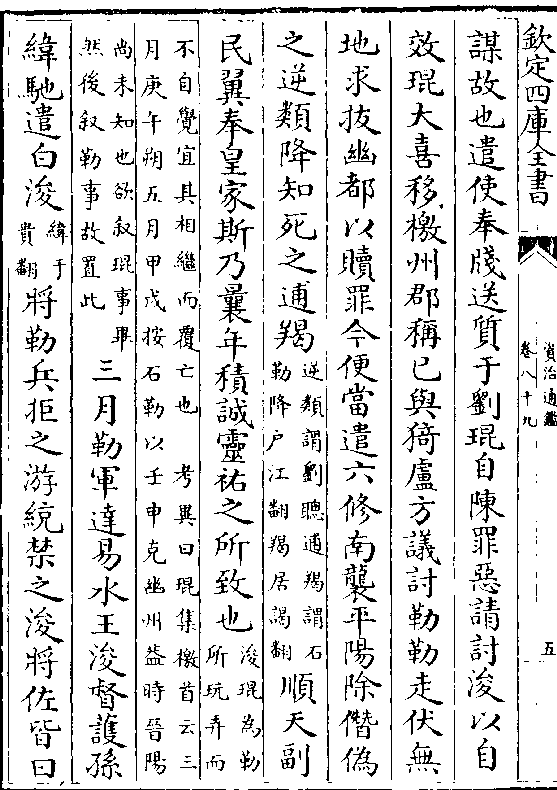 欽定四庫全書
資治通鑑
卷八十九
五
謀故也遣使奉牋送質于劉琨自陳罪惡請討浚以自
效琨大喜移檄州郡稱已與猗盧方議討勒勒走伏無
地求拔幽都以贖罪今便當遣六修南襲平陽除僭偽
之逆類降知死之逋羯
逆類謂劉聰逋羯謂石
勒降户江翻羯居謁翻
順天副
民翼奉皇家斯乃曩年積誠靈祐之所致也
浚琨為勒
所玩弄而
不自覺宜其相繼而覆亡也 考異曰琨集檄首云三
月庚午朔五月甲戌按石勒以壬申克幽州葢時晉陽
尚未知也欲叙琨事畢
然後叙勒事故置此
三月勒軍達易水王浚督護孫
緯馳遣白浚
緯于
貴翻
將勒兵拒之游統禁之浚將佐皆曰